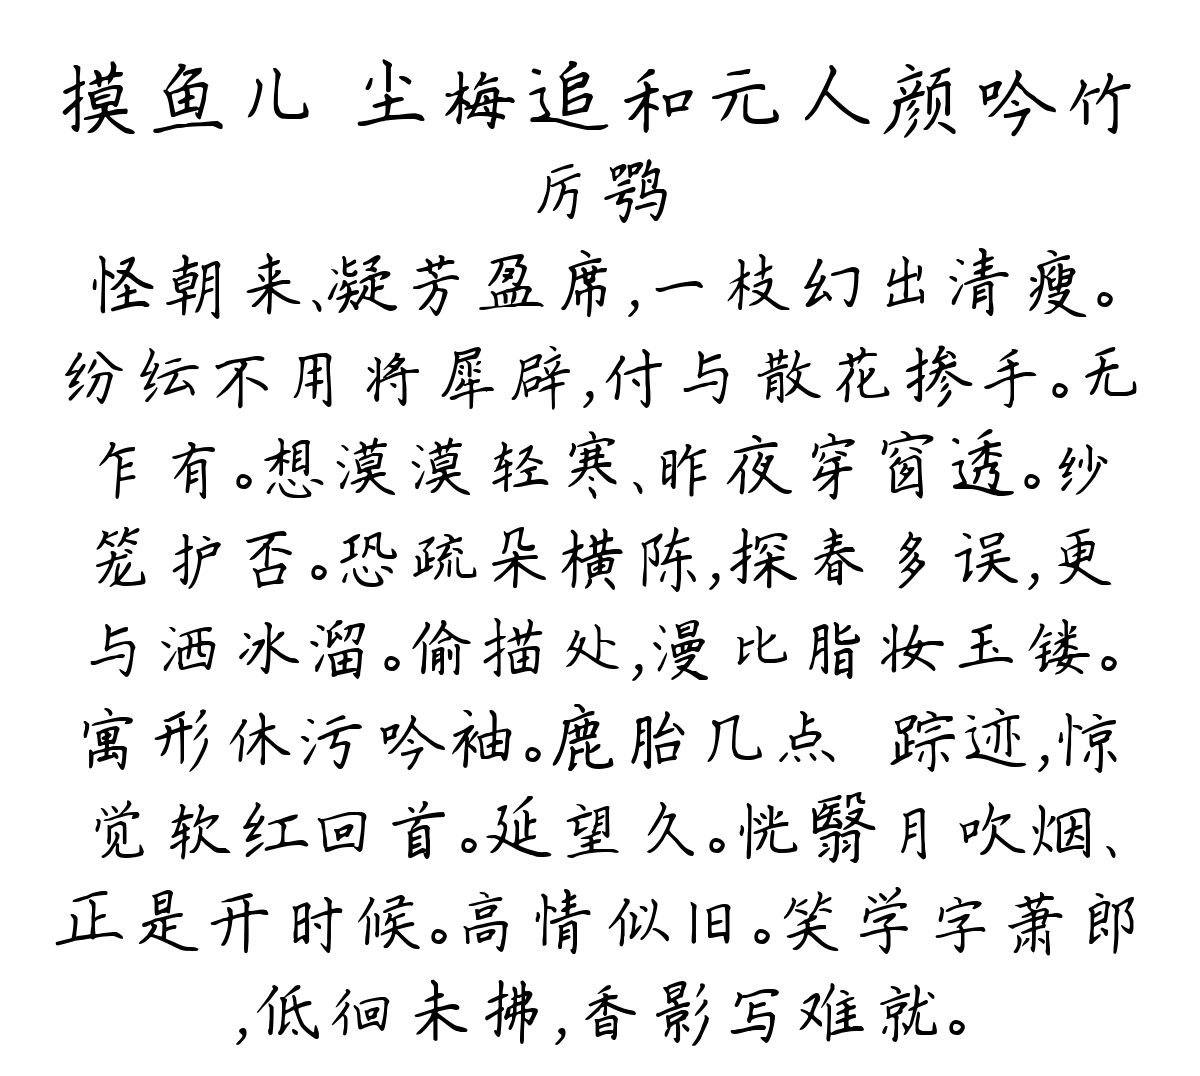 摸鱼儿 尘梅追和元人颜吟竹
厉鹗
怪朝来、凝芳盈席,一枝幻出清瘦。
纷纭不用将犀辟,付与散花掺手。无
乍有。想漠漠轻寒、昨夜穿窗透。纱
笼护否。恐疏朵横陈,探春多误,更
与洒冰溜。偷描处,漫比脂妆玉镂。
寓形休污吟袖。鹿胎几点 踪迹,惊
觉软红回首。延望久。恍翳月吹烟、
正是开时候。高情似旧。笑学字萧郎
,低徊未拂,香影写难就。